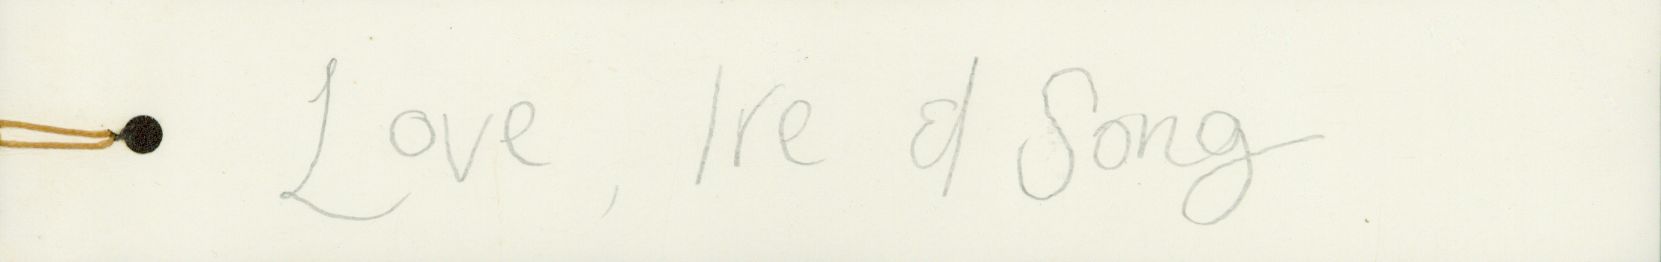 Love, Ire & Song